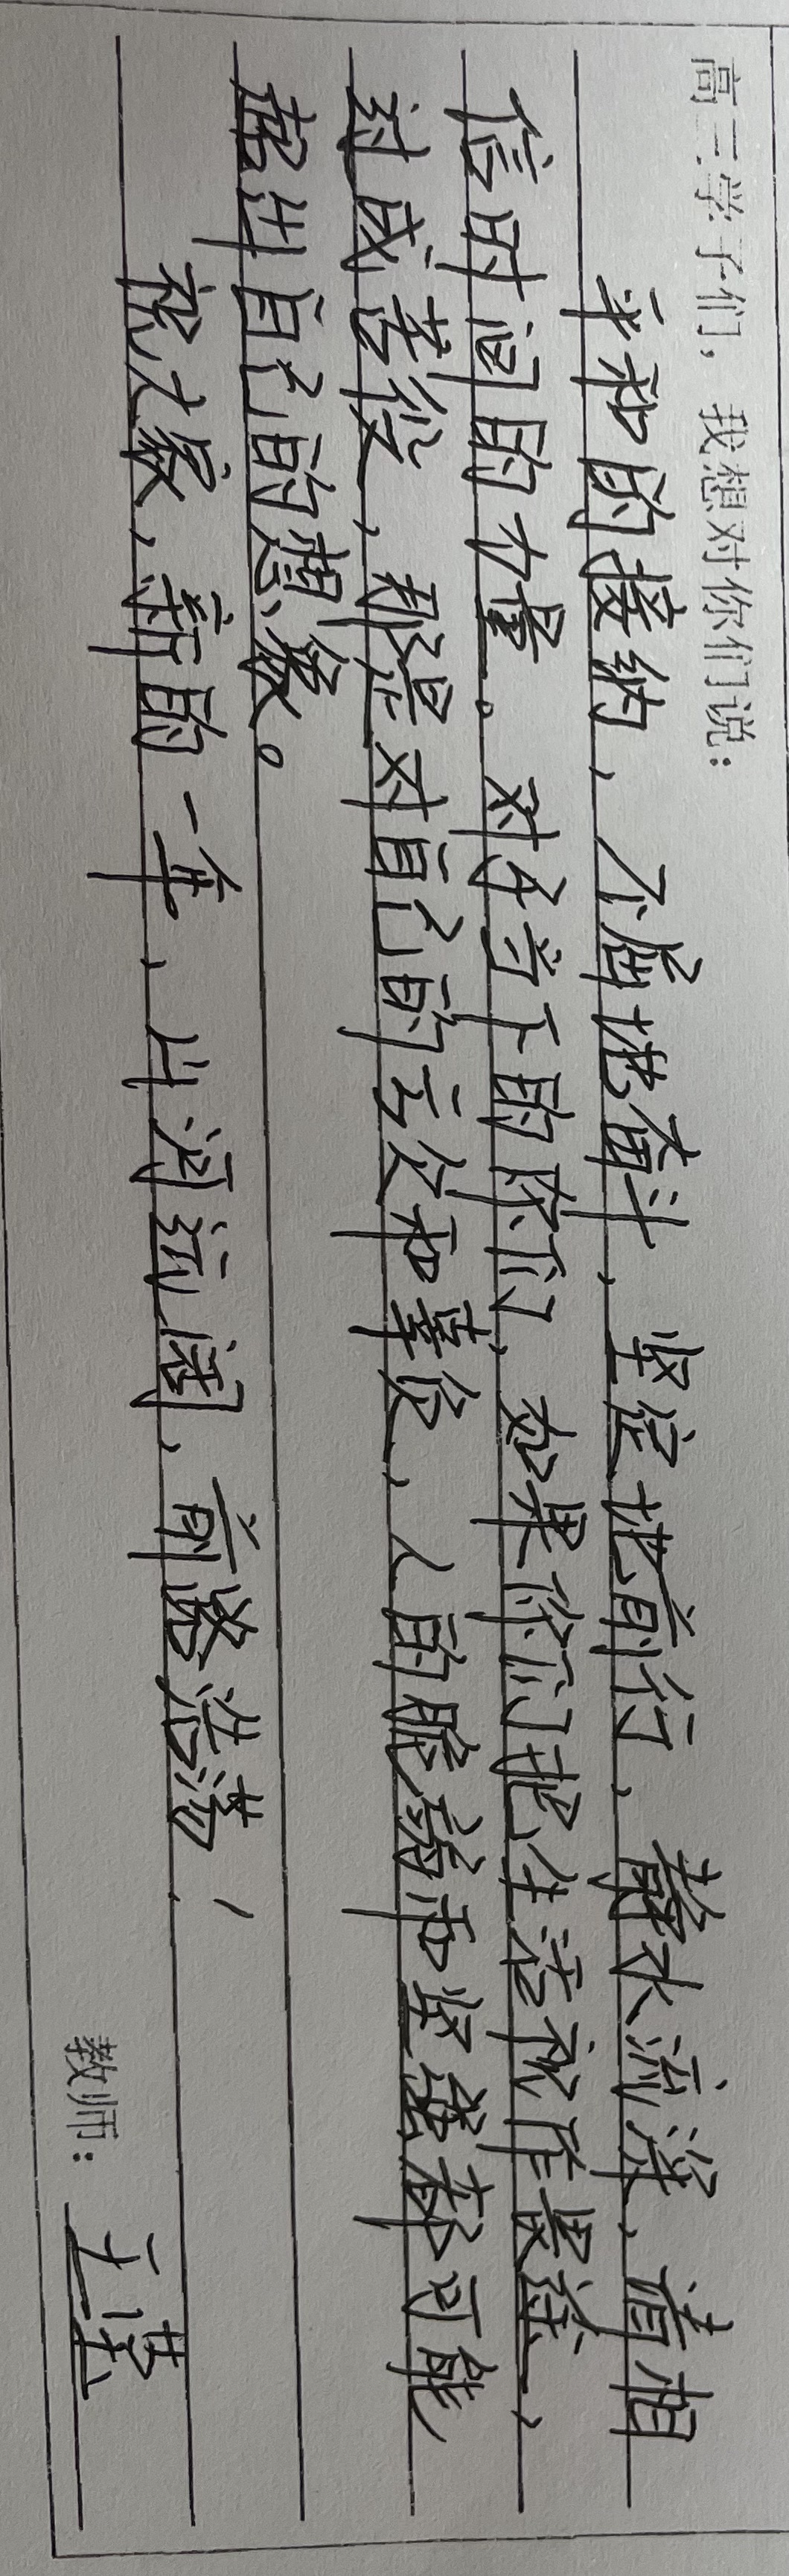 高三学子们，我想对你们说：
平和的接纳，不屈地奋斗，坚定地前行，静水流深，请相
信时间的力量。对于当下的你们，如果你们把生活视作畏途，
对成苦役，那是对自己的亏欠和辜负，人的脆弱和坚强都可能
超出自己的想象。
祝大家，新的一年，山河辽阔，前路浩荡，
教师：王莹